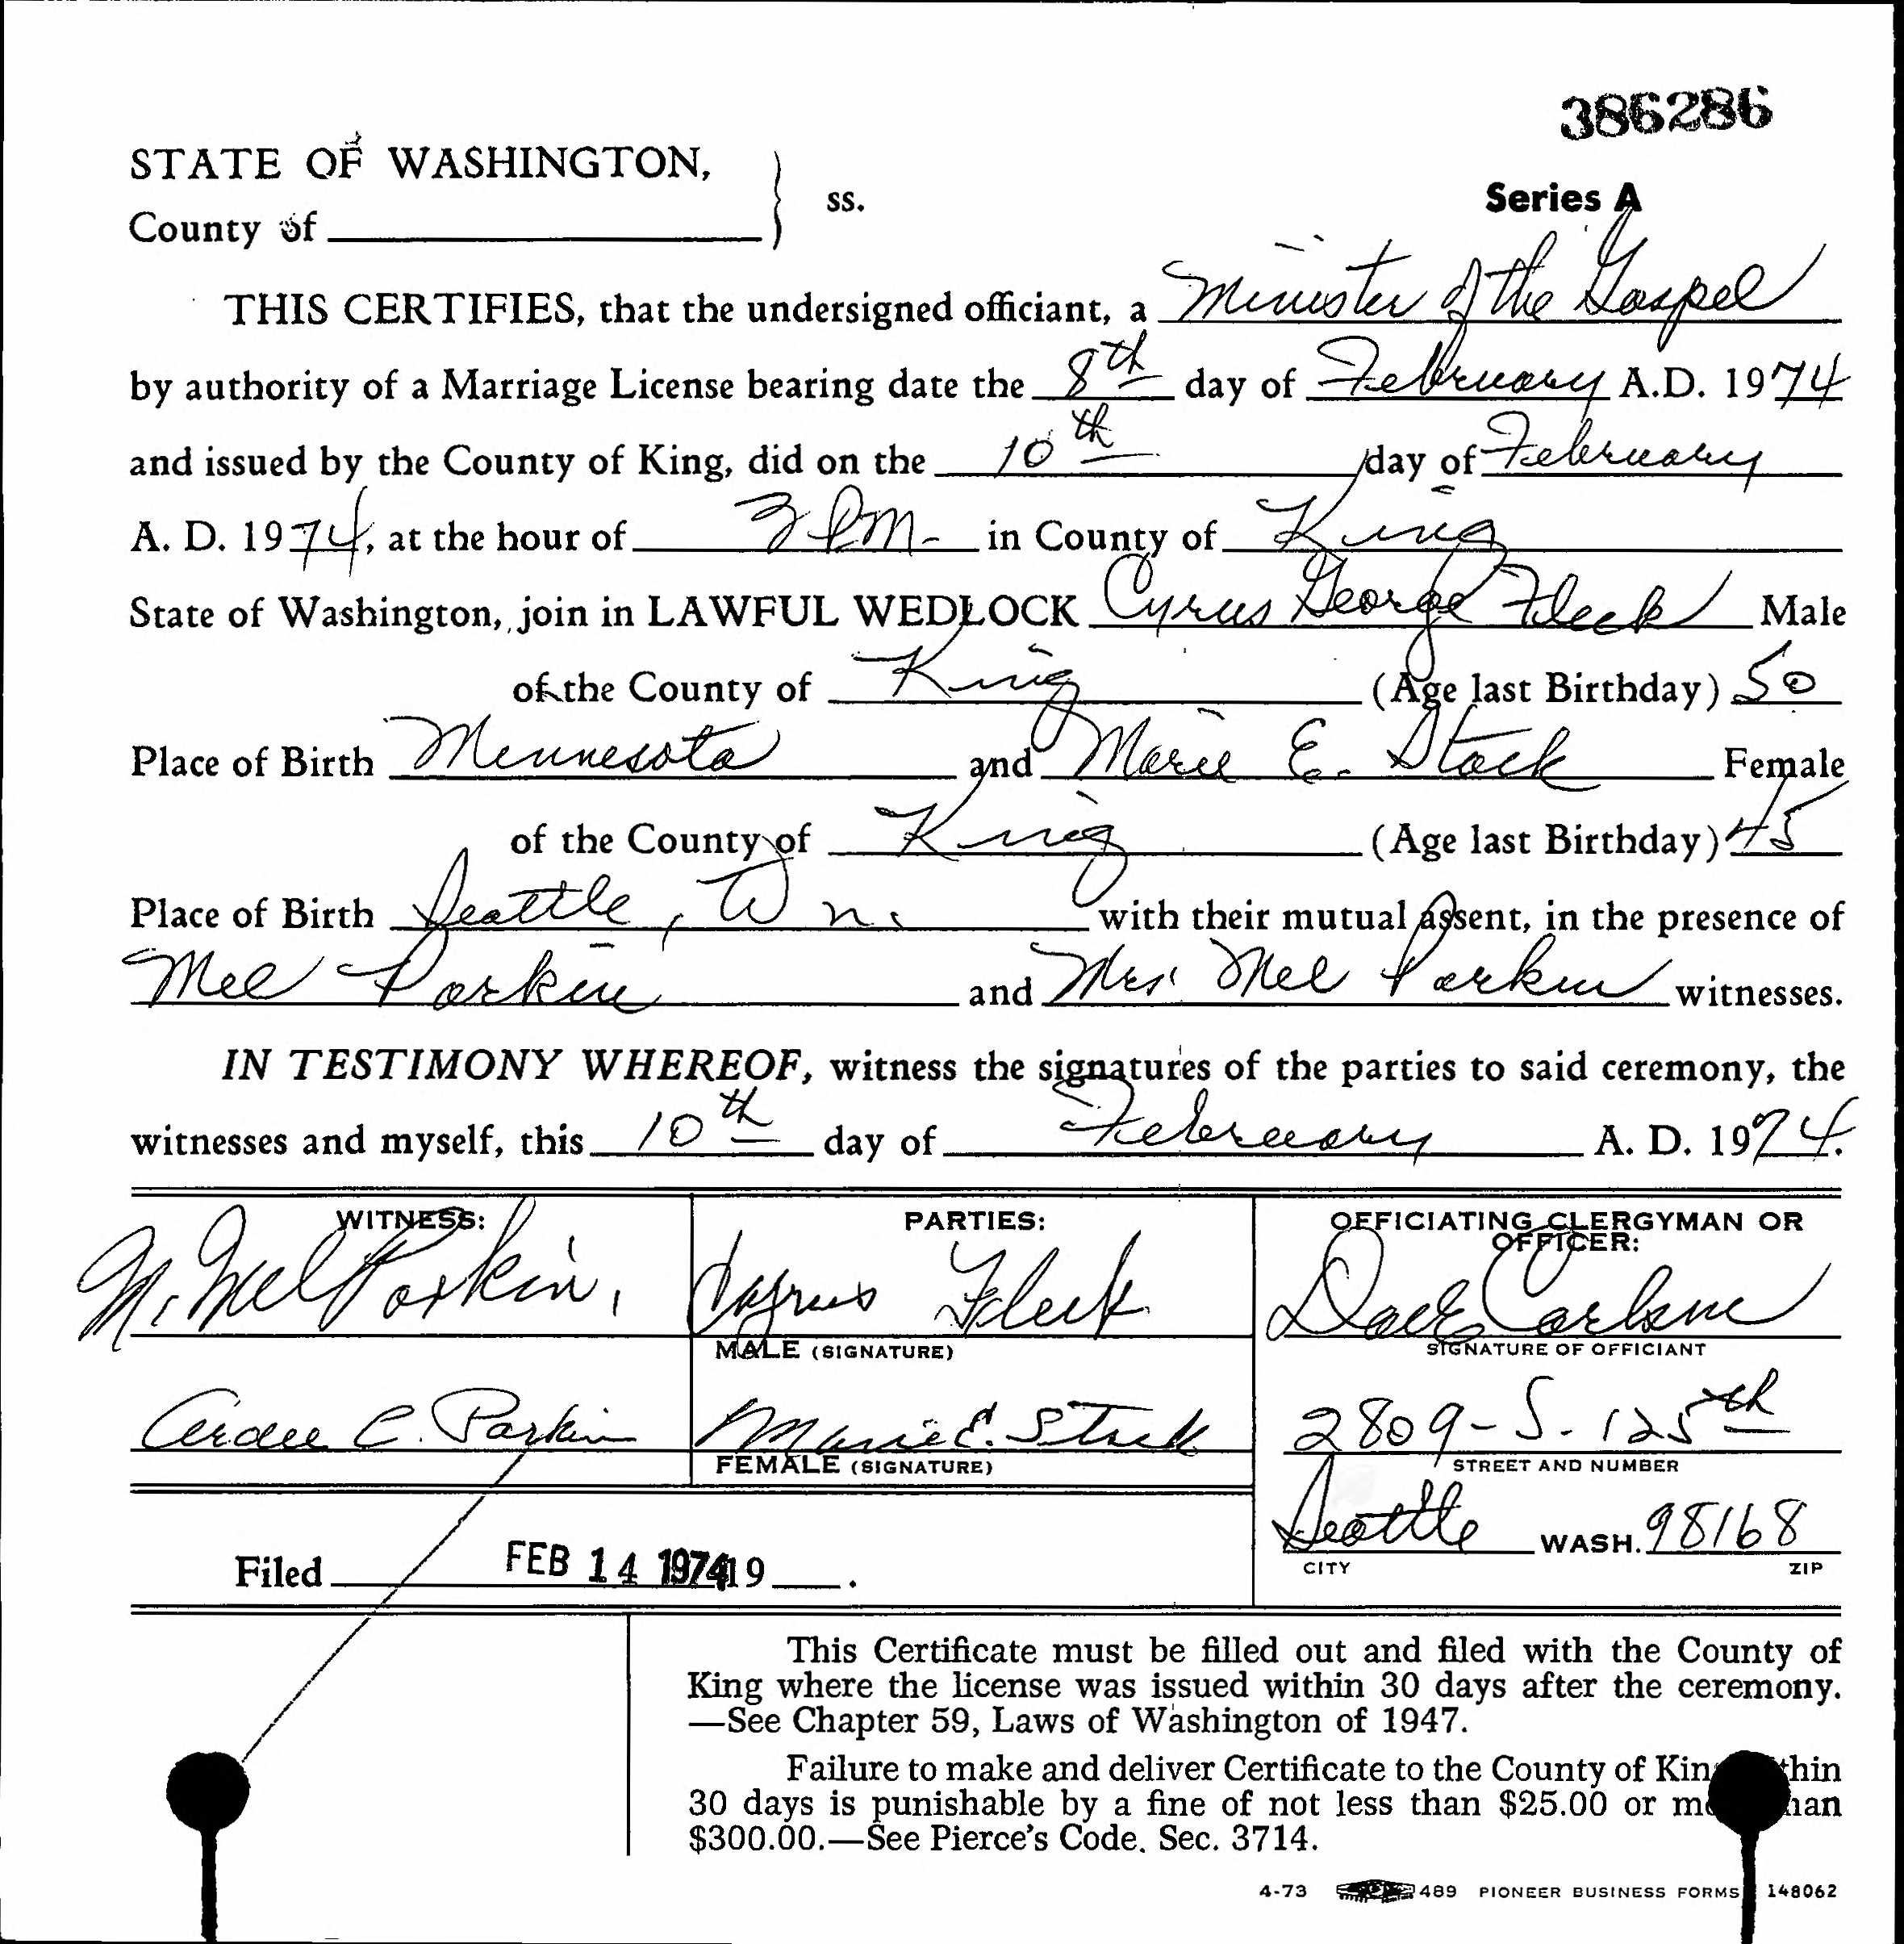 386286
STATE OF WASHINGTON,
County of
ss.
Series A
THIS CERTIFIES, that the undersigned officiant, a Minister of the Gospel
by authority of a Marriage License bearing date the 8th day of February A.D. 1974
and issued by the County of King, did on the 10th day of February
A. D. 1974, at the hour of 3 PM- in County of King
State of Washington, join in LAWFUL WEDLOCK Cyrus George Fleck Male
of the County of King (Age last Birthday) 50
Place of Birth Minnesota and Marie E. Stock Female
of the County of King (Age last Birthday) 45
Place of Birth Seattle, Wn. with their mutual assent, in the presence of
Mel Parkin and Mrs. Mel Parkin witnesses.
IN TESTIMONY WHEREOF, witness the signatures of the parties to said ceremony, the
witnesses and myself, this 10th day of February A. D. 1974.
WITNESS: PARTIES: OFFICIATING CLERGYMAN OR
OFFICER:
N. Mel Parkin, Cyrus Fleck Carlson
MALE (SIGNATURE) SIGNATURE OF OFFICIANT
C. Parkin Marie E. Stock 2809-S-125th
FEMALE (SIGNATURE) STREET AND NUMBER
Seattle WASH. 98168
CITY ZIP
Filed FEB 14 1974 19 .
This Certificate must be filled out and filed with the County of
King where the license was issued within 30 days after the ceremony.
—See Chapter 59, Laws of Washington of 1947.
Failure to make and deliver Certificate to the County of
30 days is punishable by a fine of not less than $25.00 or
$300.00.—See Pierce's Code. Sec. 3714.
4-73 489 PIONEER BUSINESS FORMS 148062